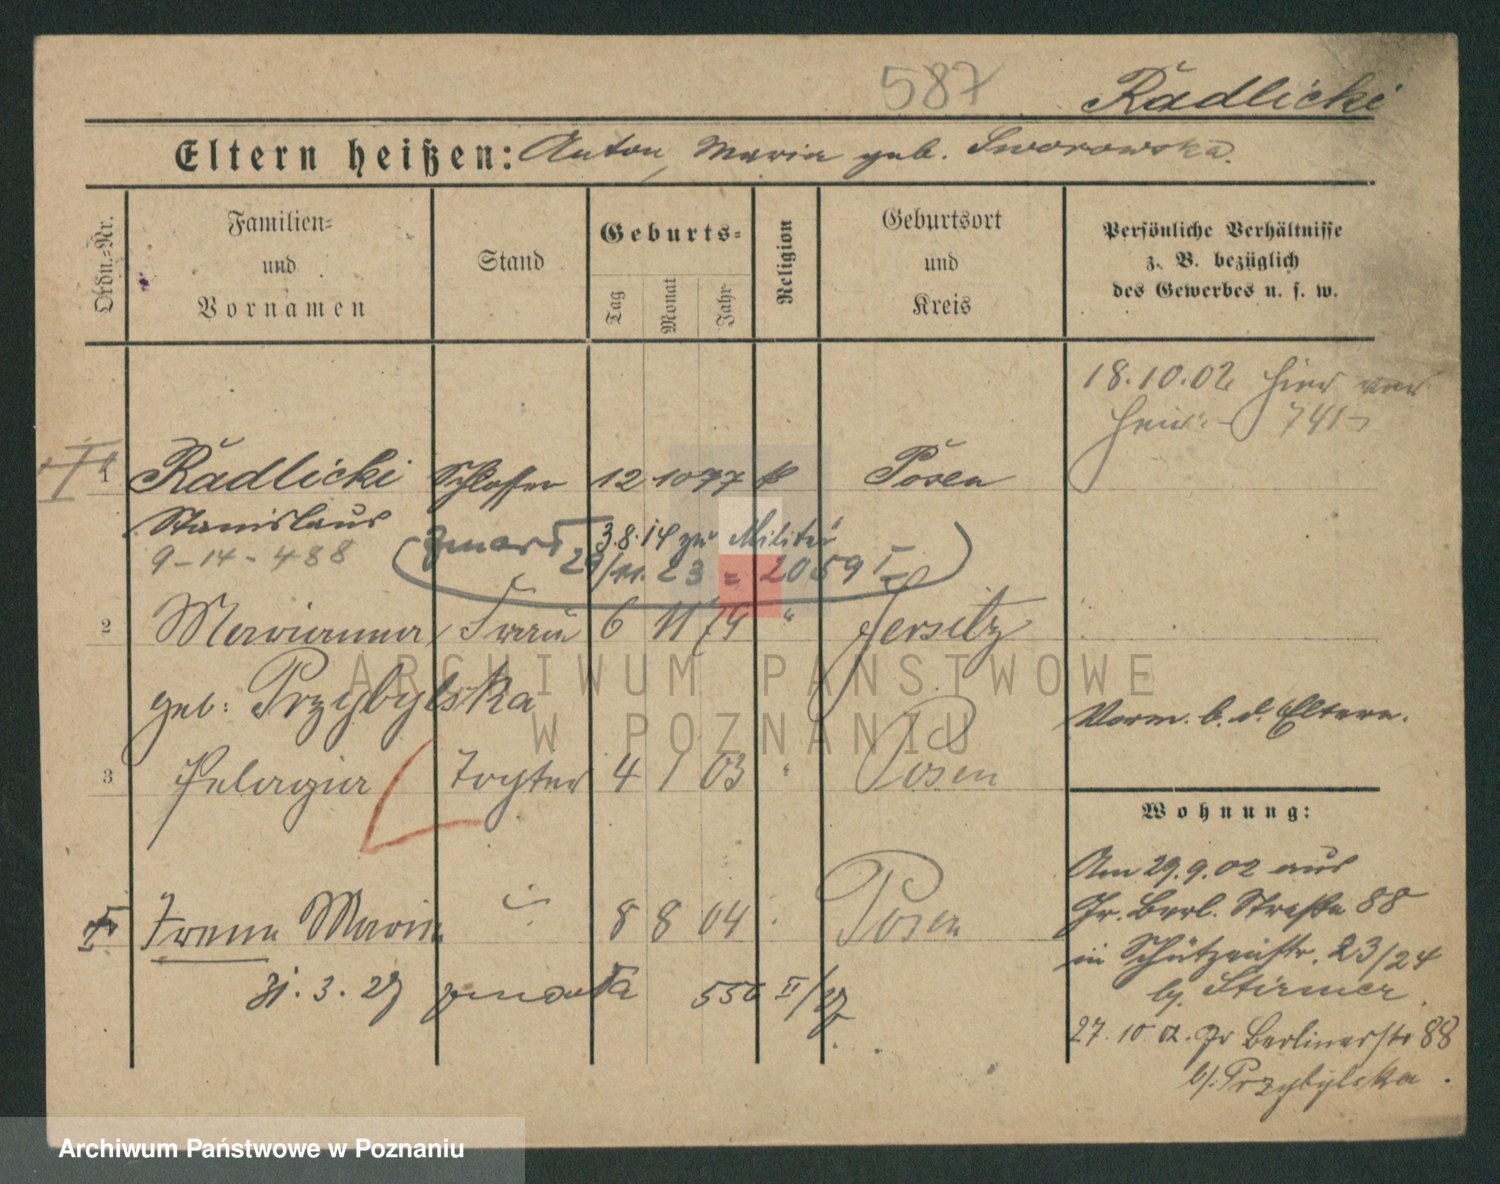 587 Radlicki
Eltern heißen: Anton, Maria geb. Sworowska.
Ordn.-Nr.
Familien-
und
Vornamen
Stand
Geburts-
Tag
Monat
Jahr
Religion
Geburtsort
und
Kreis
Persönliche Verhältnisse
z. B. bezüglich
des Gewerbes u. s. w.
18.10.02 hier
741
1 Radlicki Schlosser 12 10 77 k Posen
Stanislaus
9-14-488
zmarł 3.8.14 zu Militär
29/11. 23 = 2059 I
2 Marianna, Frau 6 11 79 " Jersitz
geb: Przybylska
Vorm. b. d. Eltern.
3 Pelagia Tochter 4 1 03 " Posen
Wohnung:
Am 29.9.02 aus
Gr. Berl. Straße 88
in Schützenstr. 23/24
bj. Stirmer.
27.10 02. Gr Berlinerstr 88
b/. Przybylska.
Irena Maria 8 8 04 Posen
31.3.27 zmarła 556 II/27
ARCHIWUM PAŃSTWOWE
W POZNANIU
Archiwum Państwowe w Poznaniu